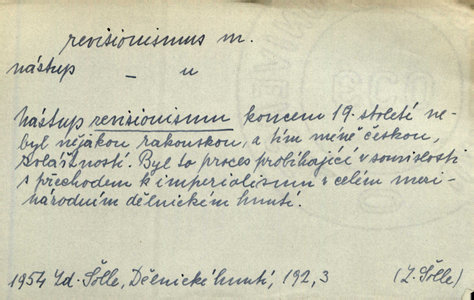 revisionismus m.
nástup – u
Nástup revisionismu koncem 19. století ne-
byl nějakou rakouskou, a tím méně českou,
zvláštností. Byl to proces probíhající v souvislosti
s přechodem k imperialismu v celém mezi-
národním dělnickém hnutí.
1954 Zd. Šolle, Dělnické hnutí, 192,3 (Z. Šolle)